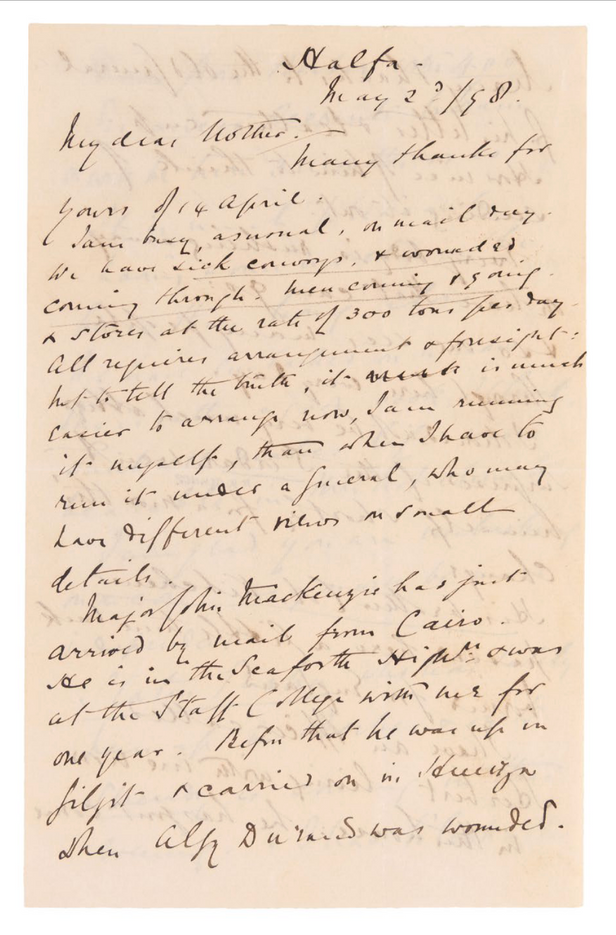 Halfa.
May 2ⁿᵈ/98.
My dear Mother. —
Many thanks for
yours of 14 April.
I am busy, as usual, on mail day.
We have sick convoys, & wounded
coming through. Men coming & going.
& stores at the rate of 300 tons per day.
All requires arrangement & foresight:
but to tell the truth, it is much
easier to arrange now, I am running
it myself, than when I have to
run it under a General, who may
have different views on small
details.
Major John Mackenzie has just
arrived by mail from Cairo.
He is in the Seaforth Highrs & was
at the Staff College with me for
one year. Before that he was up in
Gilgit & carried on in Hunza
when Algy Durand was wounded.